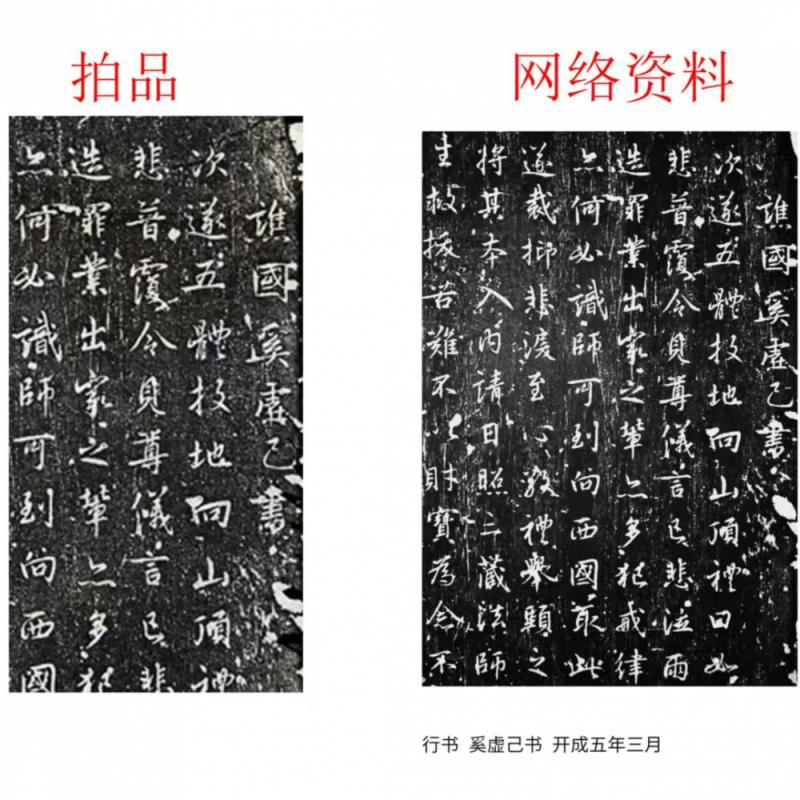 拍品
譙國奚虛己書
次遂五體投地向山頂禮
悲普覆令見尊儀言已悲
造罪業出家之輩亦多犯
亦何必識師可到向西國
网络资料
譙國奚虛己書
次遂五體投地向山頂禮曰如
悲普覆令見尊儀言已悲泣雨
造罪業出家之輩亦多犯戒律
亦何必識師可到向西國取此
遂裁抑悲淚至心敬禮舉頭之
將其本入內請日照三藏法師
生救拔苦難不以財寶為念不
行书 奚虚己书 开成五年三月